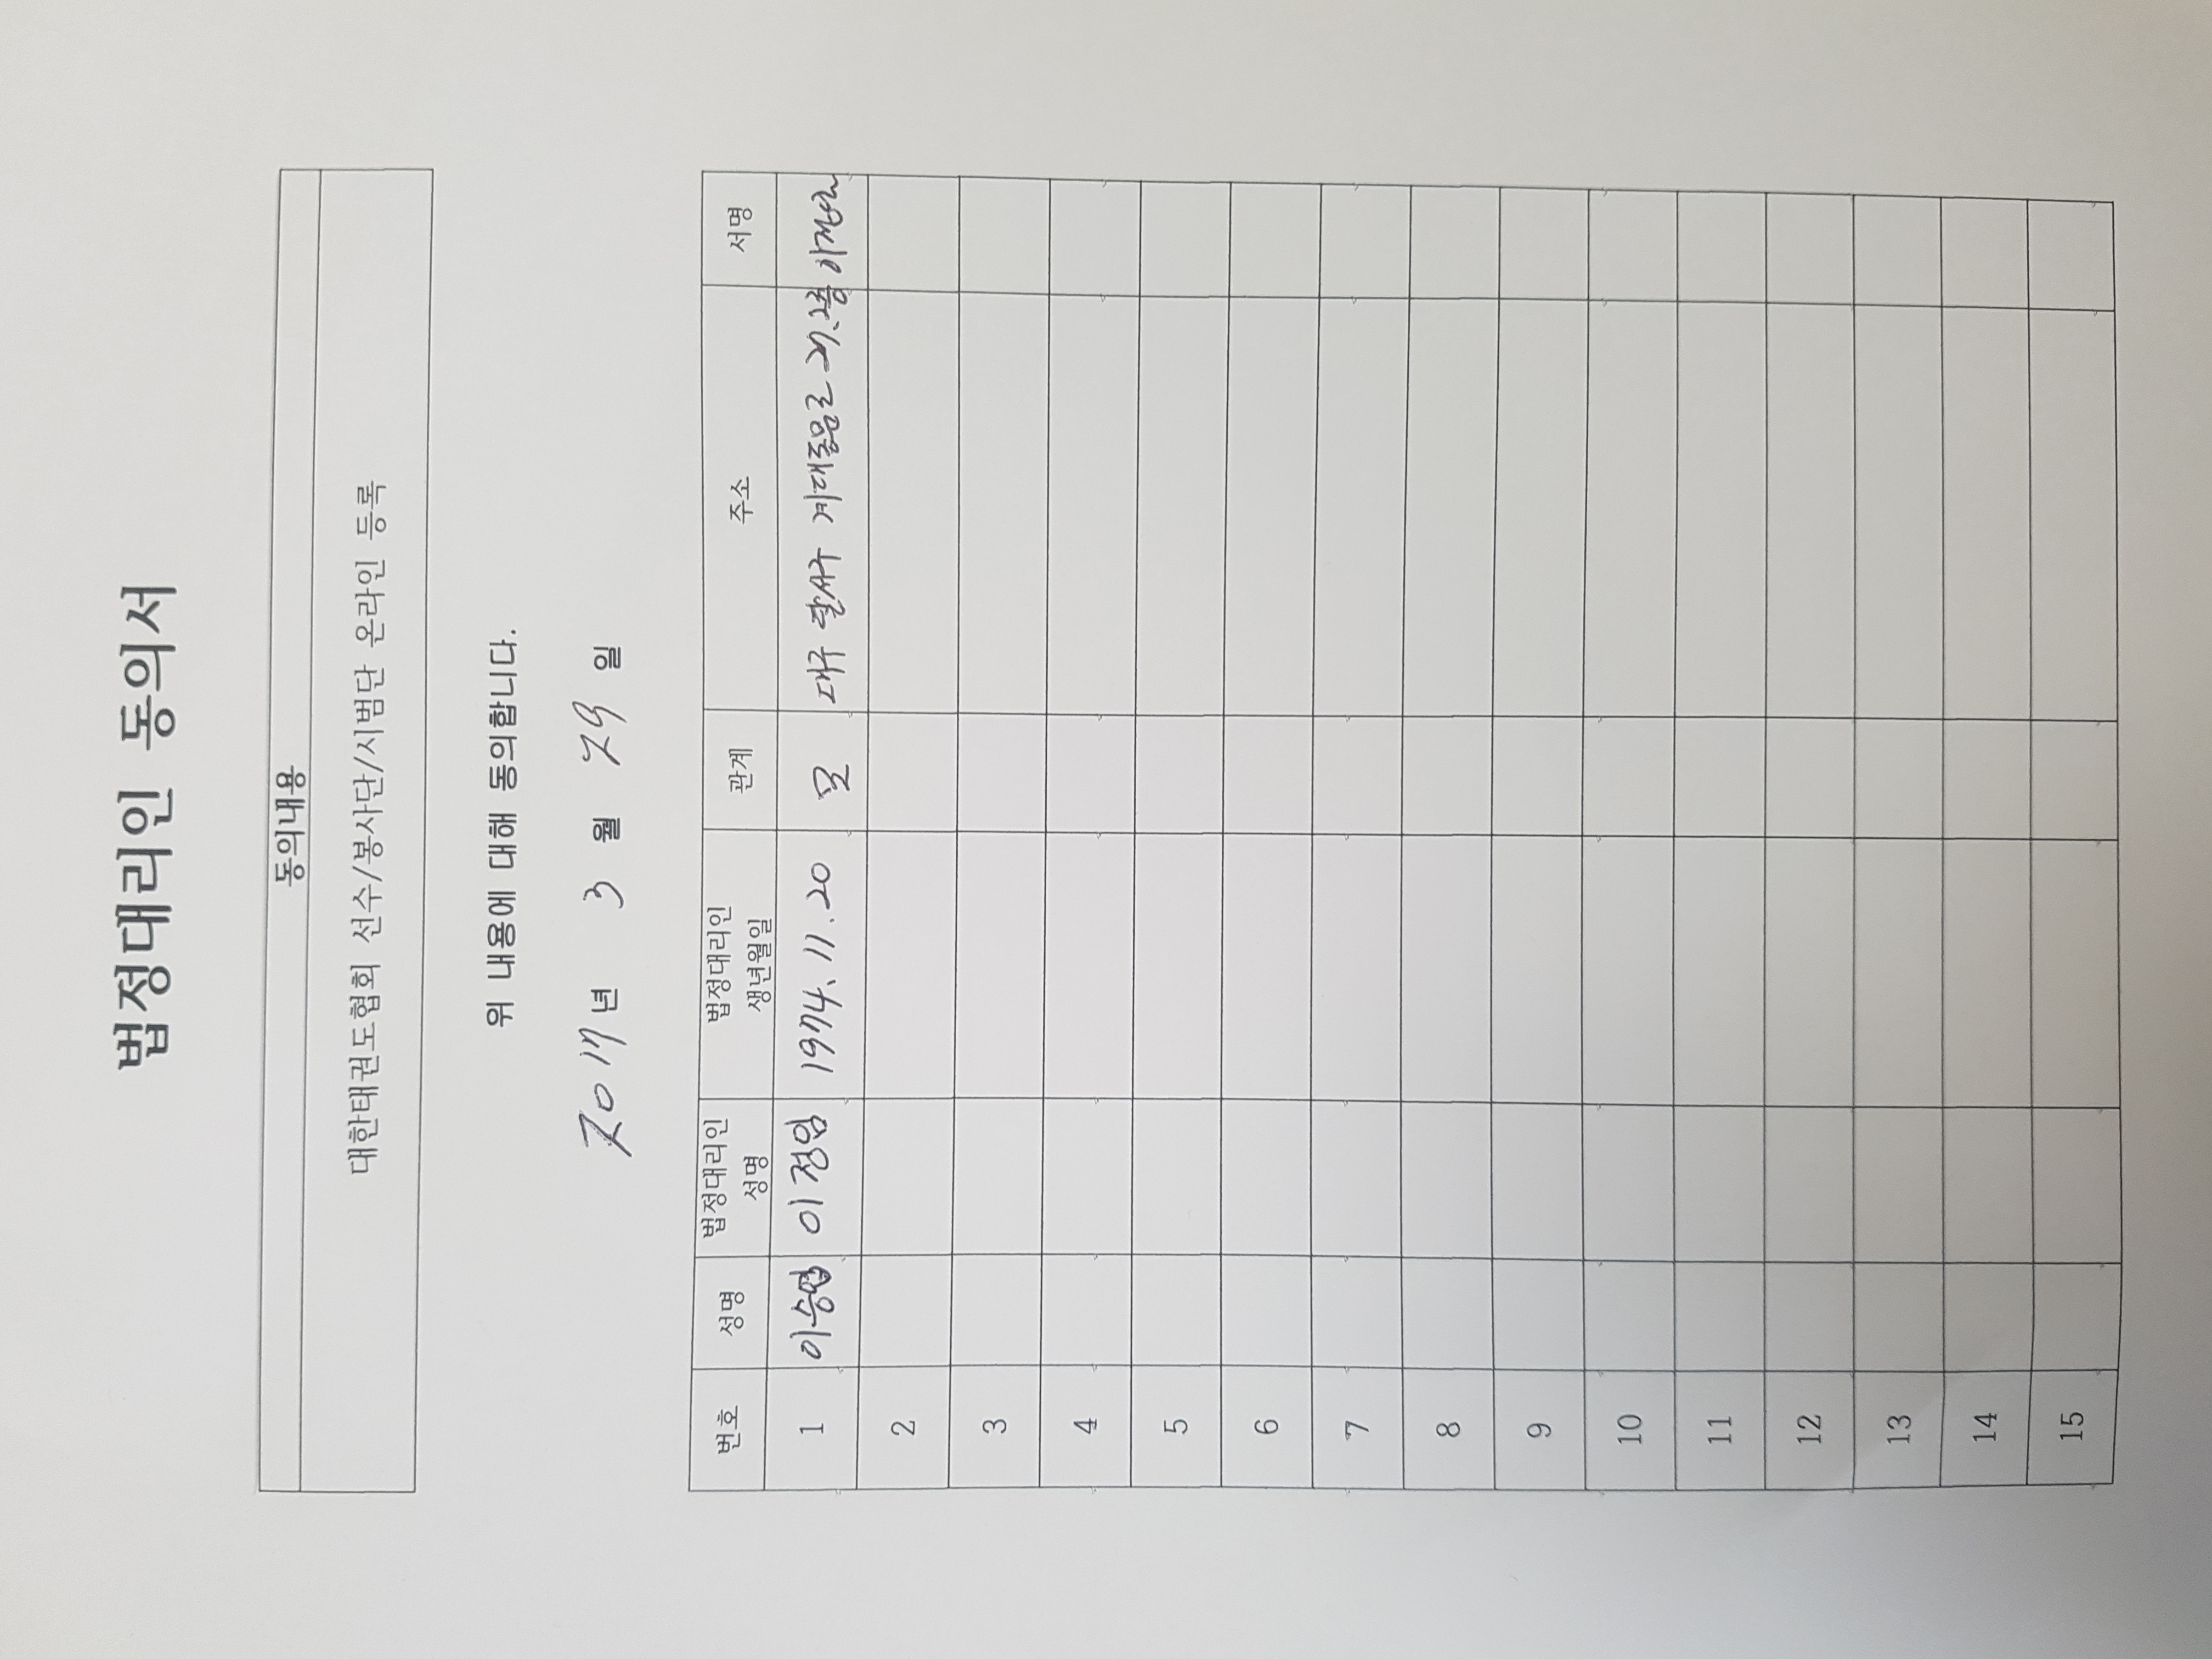 법정대리인 동의서
동의내용
대한태권도협회 선수/봉사단/시범단 온라인 등록
위 내용에 대해 동의합니다.
2017년 3월 29일
번호 성명 법정대리인 성명 법정대리인 생년월일 관계 주소 서명
1 이승협 이정임 1974. 11. 20 모 대구 달서구
2
3
4
5
6
7
8
9
10
11
12
13
14
15